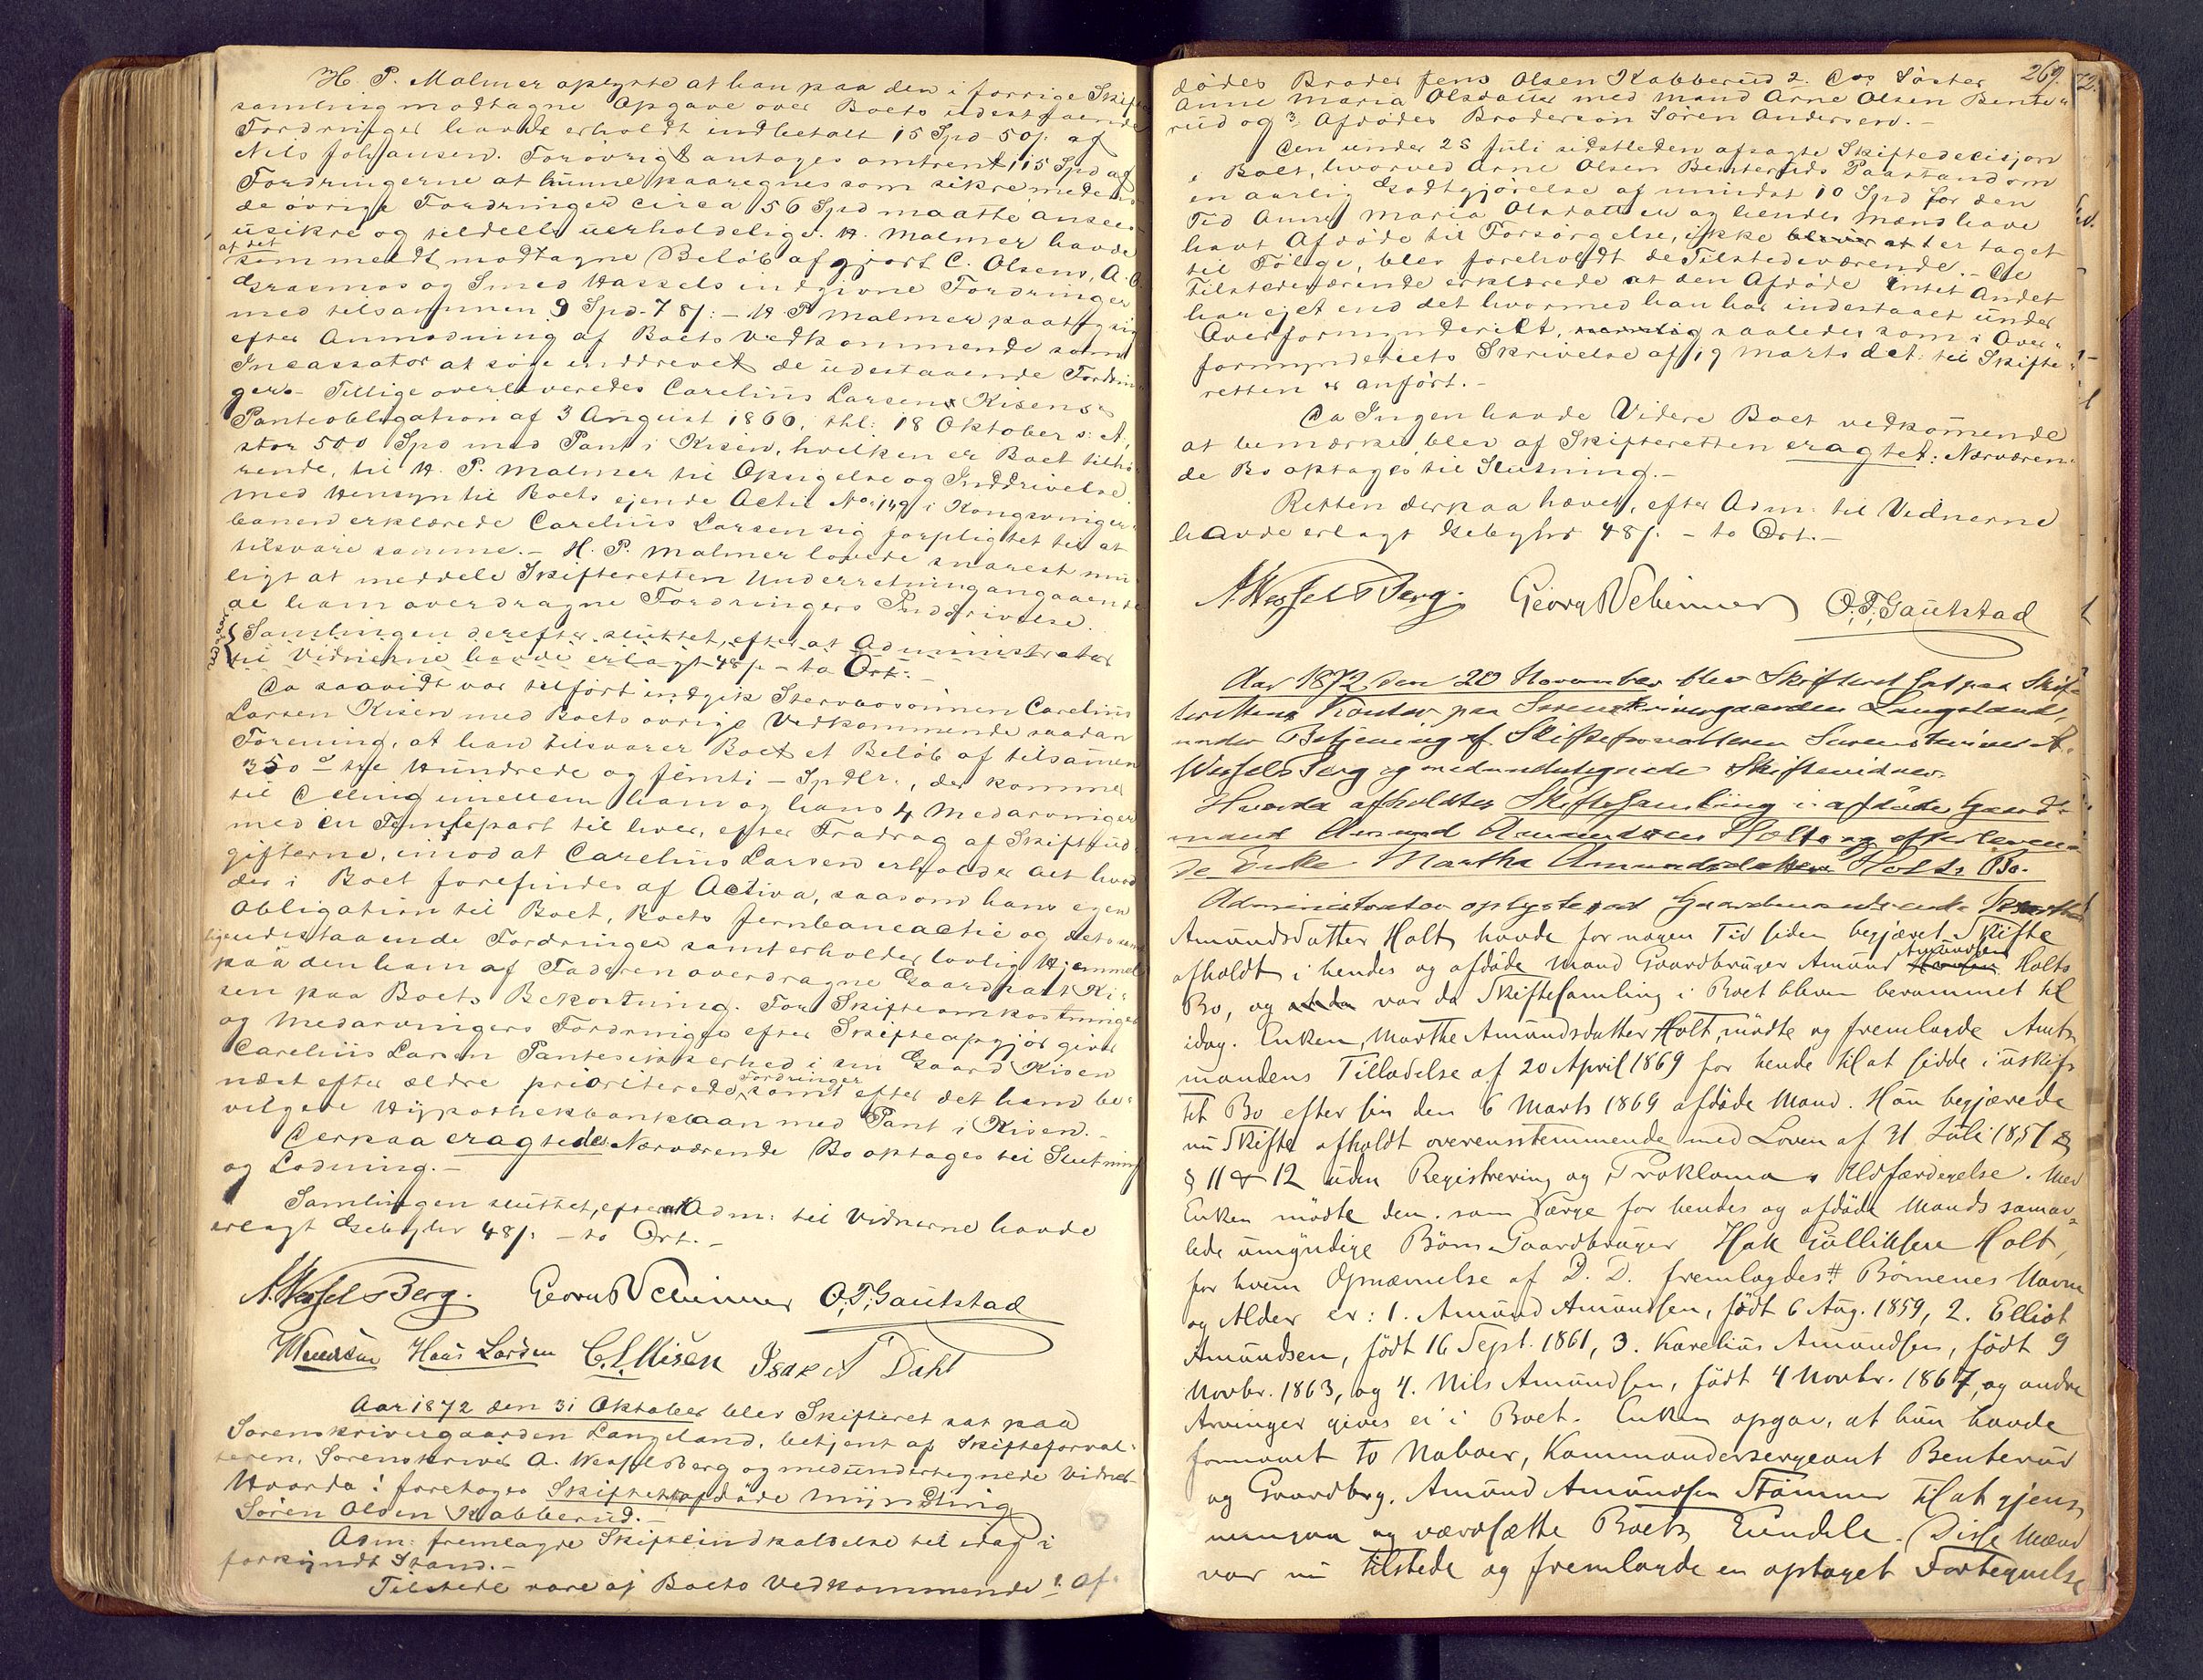 H. P. Malmer oplyste at han paa den i forrige Skifte
samling modtagne Opgave over Boets udestaaende
Fordringer havde erholdt indbetalt 15 Spd 50 s. af
Nils Johansen. Forøvrigt antages omtrent 115 Spd af
Fordringerne at kunne paaregnes som sikre medens
de øvrige Fordringer circa 56 Spd maatte ansees
usikre og tildels uerholdelige. H. Malmer havde
af det
som meldt modtagne Beløb afgjort C. Olsens, A. O.
Grasmos og Smed Hassels indgivne Fordringer
med tilsammen 9 Spd. 78 s: – H P Malmer paatog sig
efter Anmodning af Boets Vedkommende som
Incassator at søge inddrevet de udestaaende Fordrin
ger. – Tillige overleveredes Carelius Larsens Kisens
Panteobligation af 3 August 1866, thl: 18 Oktober s: A,
stor 500 Spd med Pant i Kisen, hvilken er Boet tilhø
rende, til H. P. Malmer til Opsigelse og Inddrivelse.
Med Hensyn til Boets ejende Actie No 149 i Kongsvinger
banen erklærede Carelius Larsen sig forpligtet til at
tilsvare samme. – H. P. Malmer lovede snarest mu
ligt at meddele Skifteretten Underretning angaaende
de ham overdragne Fordringers Inddrivelse.
Samlingen derefter sluttet, efter at Administrator
til Vidnerne havde erlagt 48 s. – to Ort. –
Da saavidt var tilført indgik Stervbosønnen Carelius
Larsen Kisen med Boets øvrige Vedkommende saadan
Forening, at han tilsvarer Boet et Beløb af tilsammen
350 – tre Hundrede og femti – Spdlr., der kommer
til Deling imellem ham og hans 4 Medarvinger
med en Femtepart til hver, efter Fradrag af Skifteud
gifterne, imod at Carelius Larsen erholder alt hvad
der i Boet forefindes af Activa, saasom hans egen
Obligation til Boet, Boets Jernbaneactie og dets samt
lige udestaaende Fordringer samt erholder lovlig Hjemmel
paa den ham af Faderen overdragne Gaardpart Ki-
sen paa Boets Bekostning. For Skifteomkostninger
og Medarvingers Fordringer efter Skifteopgjør giver
Carelius Larsen Pantesikkerhed i sin Gaard Kisen
næst efter ældre prioriterede Fordringer samt efter det ham be-
vilgede Hypothekbanklaan med Pant i Kisen. –
Derpaa eragtede Nærværende Bo optages til Slutning
og Lodning. –
Samlingen sluttet, efter at Adm: til Vidnerne havde
erlagt Gebyhr 48 s. – to Ort. –
A. Wessel Berg. Georg Wehinner O. T. Gautstad
Hans Larsen C. L. Kisen Isak A Dahl
Aar 1872 den 31 Oktober blev Skifteret sat paa
Sorenskrivergaarden Langeland, betjent af Skifteforval-
teren, Sorenskriver A. Wesselsberg og medundertegnede Vidner
Hvorda: foretages Skifte efter afdøde Myndling
Søren Olsen Kabberud. –
Adm: fremlagde Skifteindkaldelse til idag i
forkyndt Stand. –
Tilstede vare af Boets Vedkommende 1. Af-
269.
dødes Broder Jens Olsen Kabberud 2. Ds Søster
Anne Maria Olsdatter med Mand Arne Olsen Bente-
rud og 3. Afdødes Brodersøn Søren Andersen. –
Den under 25 Juli sidstleden afsagte Skiftedecisjon
i Boet, hvorved Arne Olsen Benteruds Paastand om
en aarlig Godtgjørelse af mindst 10 Spd for den
Tid Anne Maria Olsdatter og hendes Mand have
havt Afdøde til Forsørgelse, ikke bliver at ter taget
til Følge, blev foreholdt de Tilstedeværende. – De
Tilstedeværende erklærede at den Afdøde Intet Andet
har ejet end det hvormed han har indestaaet under
Overformynderiet, saaledes som i Over-
formynderiets Skrivelse af 19 Marts det: til Skifte-
retten er anført. –
Da Ingen havde Videre Boet vedkommende
at bemærke, blev af Skifteretten eragtet: Nærværen-
de Bo optages til Slutning. –
Retten derpaa hævet, efter Adm: til Vidnerne
havde erlagt Gebyhr 48 s. – to Ort. –
A. Wessel Berg. Georg Wehinner O. T. Gautstad
Aar 1872 den 20 November blev Skifteret sat paa Skif-
terettens Kontor paa Sorenskrivergaarden Langeland,
under Betjening af Skifteforvalteren Sorenskriver A.
Wessels Berg og medundertegnede Skiftevidner.
Hvorda afholdtes Skiftesamling i afdøde Gaard-
mand Amund Amundsen Holts og efterleven-
de Enke Marthe Amundsdatter Holts Bo.
Administrator oplyste at Gaardmandsenke Marthe
Amundsdatter Holt havde for nogen Tid siden begjæret Skifte
afholdt i hendes og afdøde Mand Gaardbruger Amund Amundsen Holts
Bo, og var da Skiftesamling i Boet bleven berammet til
idag. Enken, Marthe Amundsdatter Holt, mødte og fremlagde Amt-
mandens Tilladelse af 20 April 1869 for hende til at sidde i uskif-
tet Bo efter sin den 6 Marts 1869 afdøde Mand. Hun begjærede
nu Skifte afholdt overensstemmende med Loven af 31 Juli 1851
§ 11 & 12 uden Registrering og Proklama s Udfærdigelse. Med
Enken mødte den som Værge for hendes og afdøde Mands samav-
lede umyndige Børn Gaardbruger Hak Gulliksen Holt,
for hvem Opnævnelse af D. D. fremlagdes. # Børnenes Navne
og Alder er: 1. Amund Amundsen, født 6 Aug. 1859, 2. Elliot
Amundsen, født 16 Sept. 1861, 3. Karelius Amundsen, født 9
Novbr. 1863, og 4. Nils Amundsen, født 4 Novbr. 1867, og andre
Arvinger gives ei i Boet. Enken opgav, at hun havde
formaaet to Naboer, Kommandersergeant Benterud
og Gaardbrg. Amund Amundsen Stømner til at gjen-
nemgaa og værdsætte Boets Eiendele. Disse Mænd
var nu tilstede og fremlagde en optaget Fortegnelse